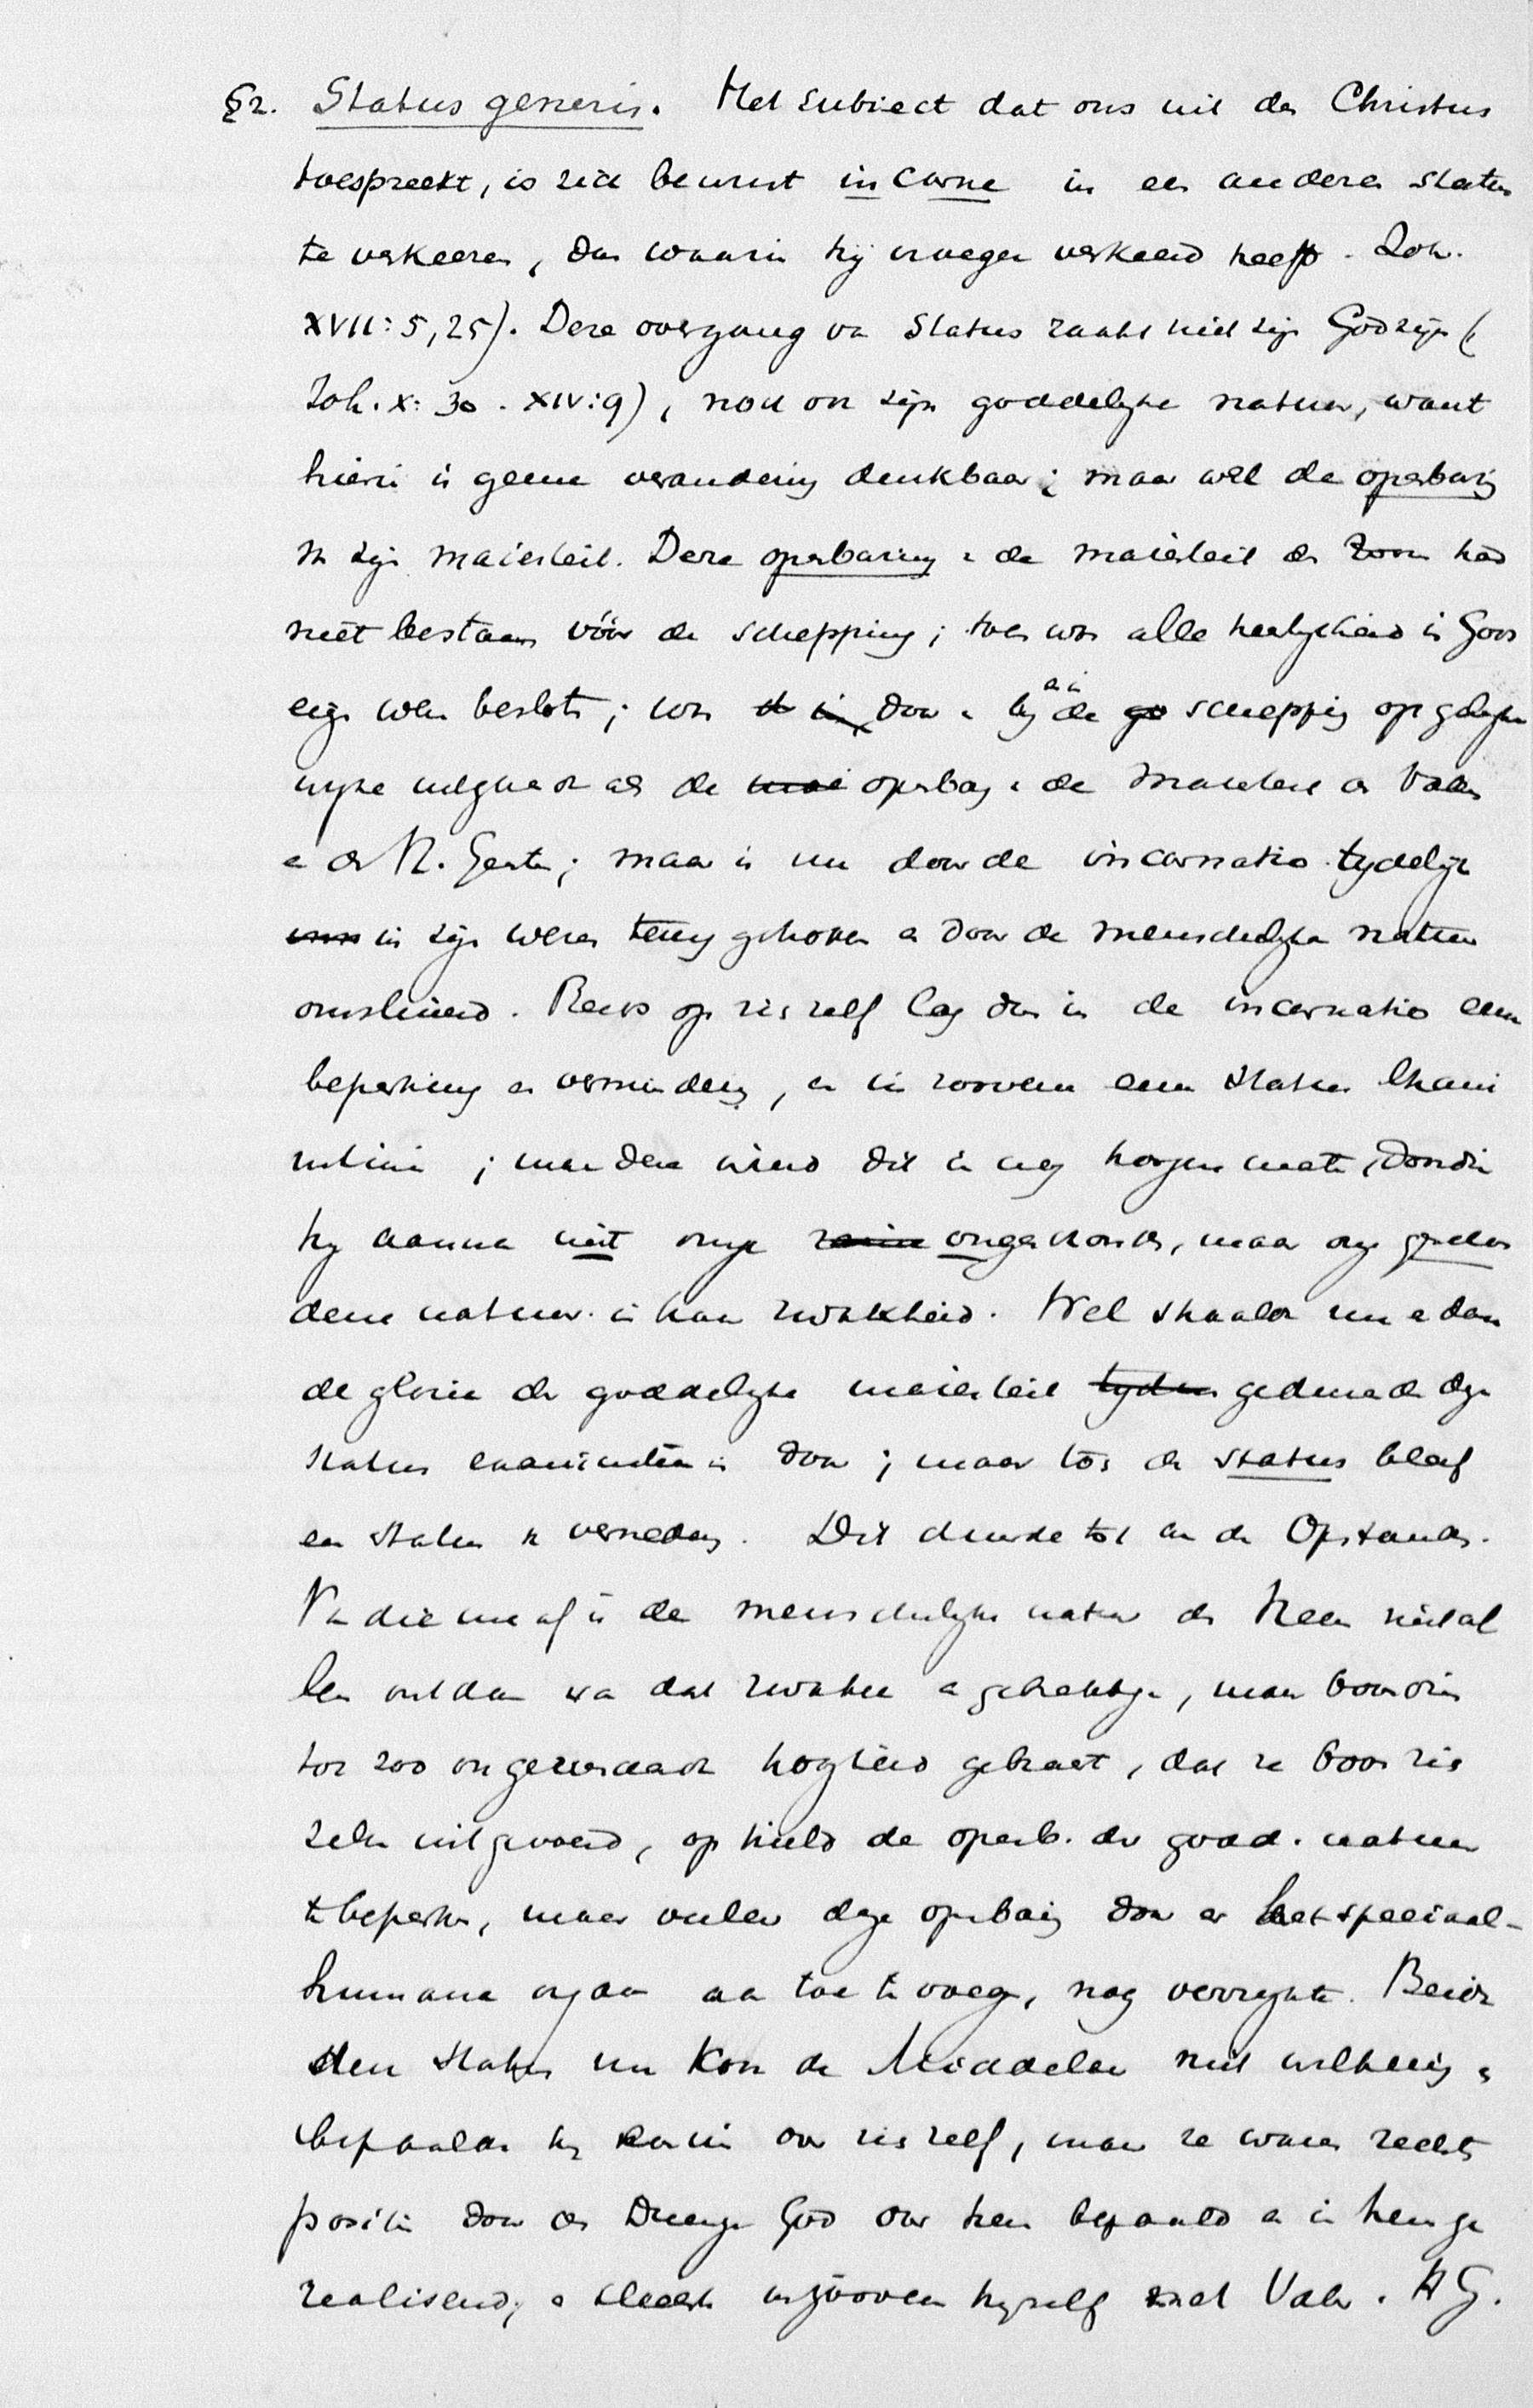 §2. Status generis. Het subiect dat ons uit den Christus
toespreekt, is zich bewust in carne in een anderen status
te verkeeren, dan waarin hij vroeger verkeerd heeft. Joh.
XVII: 5, 25). Deze overgang van status raakt niet zijn Godzijn (
Joh. X: 30. XIV: 9), noch ook zijn goddelijke natuur, want
hierin is geene verandering denkbaar; maar wel de openbaring
van zijn maiesteit. Deze openbaring van de maiesteit des Zoons had
niet bestaan vóór de schepping; toen was alle heerlijkheid in Gods
eigen wezen besloten; was door en bij en in de schepping op gelijke
wijze uitgegaan als de openbaring van de Maiesteit des Vaders
en des H. Geestes; maar is nu door de incarnatio tijdelijk
in zijn wezen teruggetrokken en door de menschelijke natuur
omsluierd. Reeds op zich zelf lag dus in de incarnatio eene
beperking en vermindering, en in zooverre een status exani
nitionis; maar deze werd dit in nog hooger mate, doordien
hij aannam niet onze ongeschonden, maar onze geschon
dene natuur in haar zwakheid. Wel straalde nu en dan
de glorie der goddelijke maiesteit gedurende dezen
status exaninitionis door; maar toch de status bleef
een status van vernedering. Dit duurde tot aan de Opstanding.
Van die ure af is de menschelijke natuur des Heeren niet al
leen ontdaan van dat zwakke en gebrekkige, maar bovendien
tot zoo ongeëvenaarde hoogheid gebracht, dat ze boven zich
zelve uitgevoerd, op hield de openb. der godd. natuur
te beperken, maar veeleer deze openbaring door er het speciaal-
humane orgaan aan toe te voegen, nog verrijkte. Beide
deze staten nu kon de Middelaar niet willekeurig,
bepaalde hij evenmin over zich zelf, maar ze waren rechts
positiën door den Drieëenigen God over hem bepaald en in hem ge
realiseerd, en slechts in zooverre hijzelf met Vader en H. G.